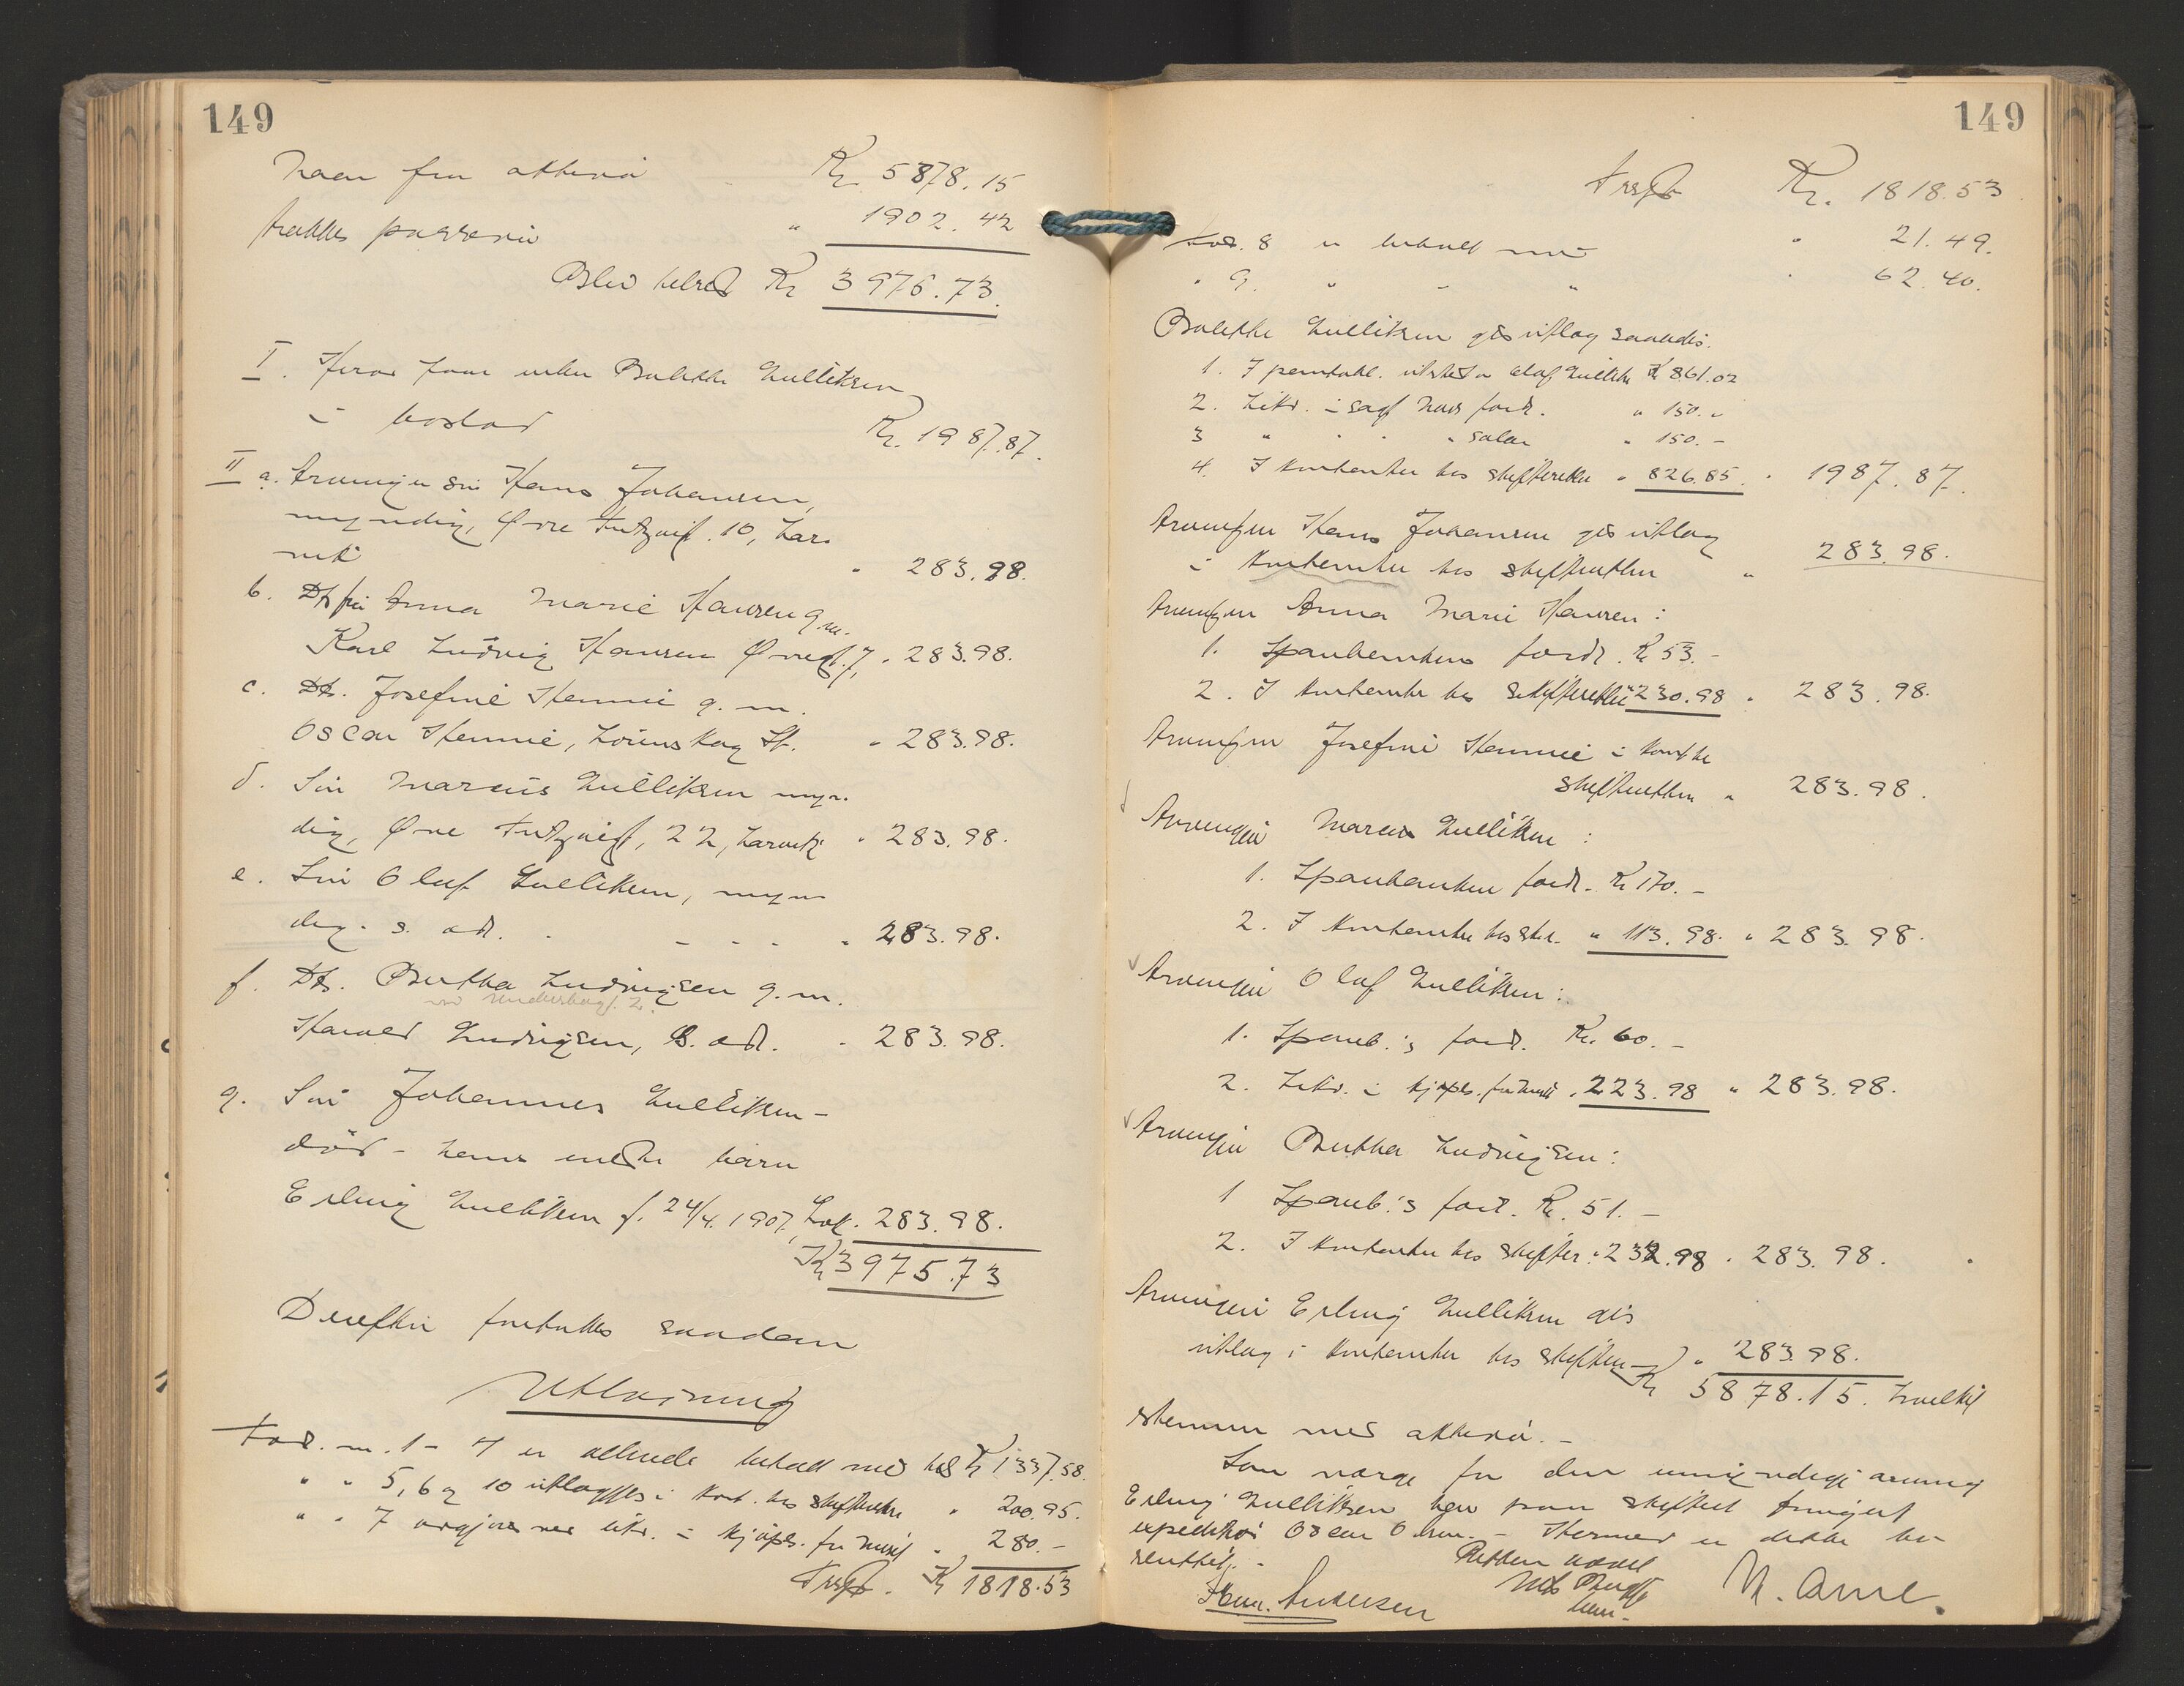 149
Naar fra aktiva Kr. 5878.15
trækkes passiva " 1902.42
Blev behold Kr 3976.73.
I. Herav faar enken Bolette Gulliksen
i boslod Kr. 1987.87.
II a. Arvingen søn Hans Johansen,
myndig, Øvre Fritzøegt. 10, Lar-
vik " 283.98.
b. Dtr fru Anna Marie Hansen g.m.
Karl Ludvig Hansen Øvregt. 7, " 283.98.
c. Dtr. Josefine Hennie g.m.
Oscar Hennie, Lørenskog St. " 283.98.
d. Søn Marcus Gulliksen myn-
dig, Øvre Fritzøegt, 22, Larvik " 283.98.
e. Søn Olaf Gulliksen, myn-
dig. s. ad. - - - - " 283.98.
f. Dtr. Bertha Ludvigsen g.m.
Harald Ludvigsen, s. ad. " 283.98.
g. Søn Johannes Gulliksen -
død - hans eneste barn
Erling Gulliksen f. 24/4. 1907, 283.98.
Kr 3975.73
Derefter foretokes saadan
Utlodning
Ford. nr. 1 - 4 er allerede betalt med Kr 1337.58.
" " 5, 6 og 10 utlægges i kont. hos skifteretten " 200.95.
" " 7 avgjøres ved likv. i kjøpes. for " 280.-
Transp. Kr 1818.53
149
Transp. Kr. 1818.53
Ford. 8 er betalt med " 21.49.
" 9. " " " " 62.40.
Bolette Gulliksen gis utlæg saaledes.
1. I utstedt av Olaf Gulliksen Kr 861.02
2. Likv. i ford. " 150.-
3 " " " " " 150.-
4. I kontanter hos skifteretten " 826.85. " 1987.87.
Arvingen Hans Johansen gis utlæg
i kontanter hos skifteretten " 283.98.
Arvingen Anna Marie Hansen:
1. Sparebankens fordr. Kr 53.-
2. I kontanter hos skifteretten " 230.98 " 283.98.
Arvingen Josefine Hennie i kont. hos
skifteretten " 283.98.
Arvingen Marcus Gulliksen:
1. Sparebanken fordr. Kr 170.-
2. I kontanter hos sk.r. " 113.98. " 283.98.
Arvingen Olaf Gulliksen:
1. Spareb.'s ford. Kr. 60.-
2. Likv. i kjøpes. for " 223.98 " 283.98.
Arvingen Bertha Ludvigsen:
1 Spareb.'s ford. Kr. 51.-
2. I kontanter hos skifter. " 232.98 " 283.98.
Arvingen Erling Gulliksen gis
utlæg i kontanter hos skifteretten " 283.98.
Kr 5878.15. hvilket
stemmer med aktiva. -
Som værge for den umyndige arving
Erling Gulliksen har paa skiftet fungert
expeditør Oscar Olsen. - Hermed er dette bo
sluttet. -
Retten hævet
Nils
Henr. Andersen
N. Arne.